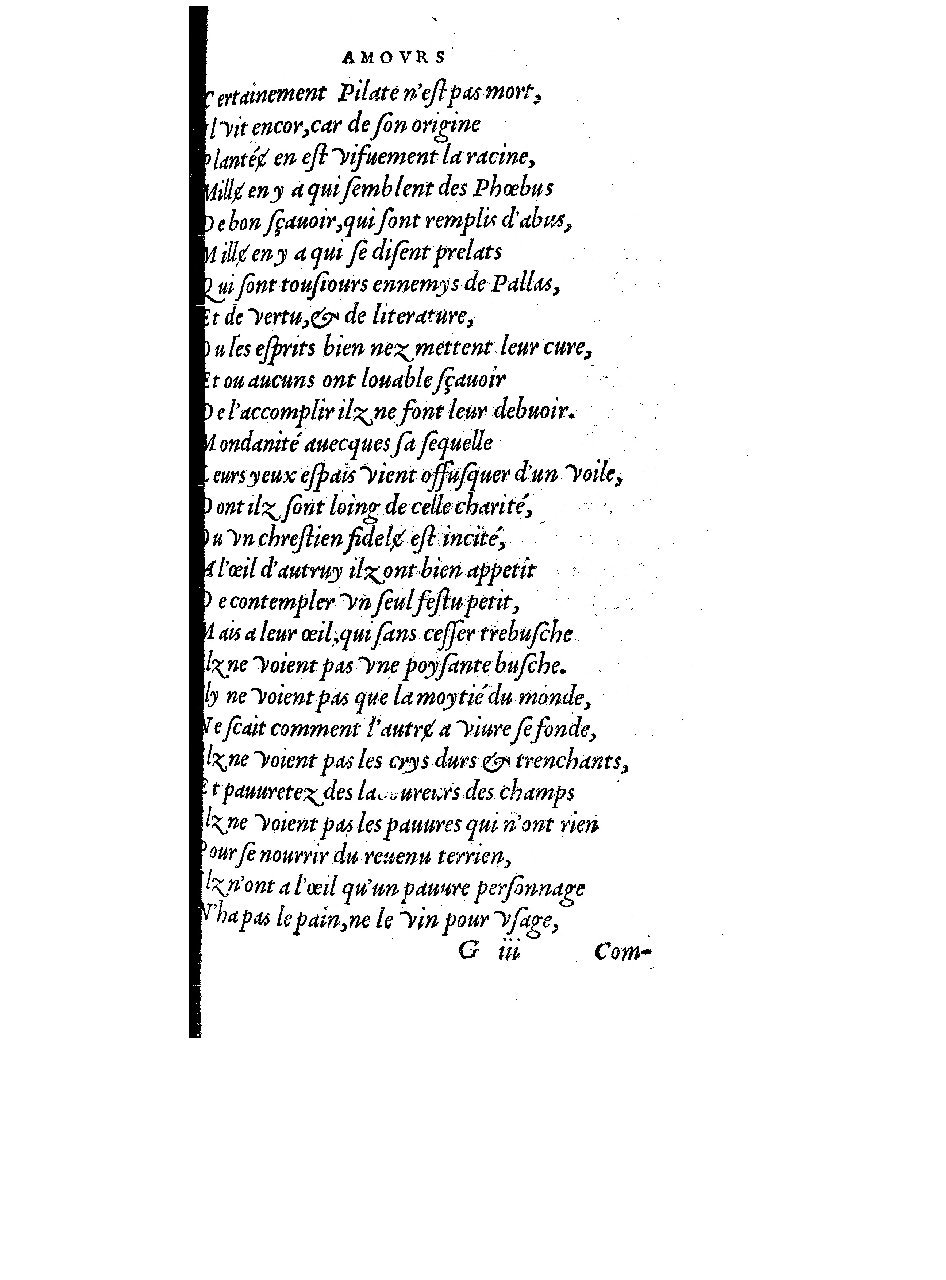 AMOVRS
Certainement Pilate n'eſt pas mort,
Il vit encor, car de ſon origine
Plantée en eſt viſuement la racine,
Mille en y a qui ſemblent des Phœbus
De bon ſçauoir, qui ſont remplis d'abus,
Mille en y a qui ſe diſent prelats
Qui ſont touſiours ennemys de Pallas,
Et de vertu, & de literature,
Ou les eſprits bien nez mettent leur cure,
Et ou aucuns ont louable ſçauoir
De l'accomplir ilz ne font leur debuoir.
Mondanité auecques ſa ſequelle
Leurs yeux eſpais vient offuſquer d'un voile,
Dont ilz ſont loing de celle charité,
Ou vn chreſtien fidele eſt incité,
A l'œil d'autruy ilz ont bien appetit
De contempler vn ſeul feſtu petit,
Mais a leur œil, qui ſans ceſſer trebuſche
Ilz ne voient pas vne poyſante buſche.
Ily ne voient pas que la moytié du monde,
Ne ſcait comment l'autre a viure ſe fonde,
Ilz ne voient pas les crys durs & trenchants,
Et pauuretez des laboureurs des champs
Ilz ne voient pas les pauures qui n'ont rien
Pour ſe nourrir du reuenu terrien,
Ilz n'ont a l'œil qu'un pauure perſonnage
N'ha pas le pain, ne le vin pour vſage,
G iii Com-